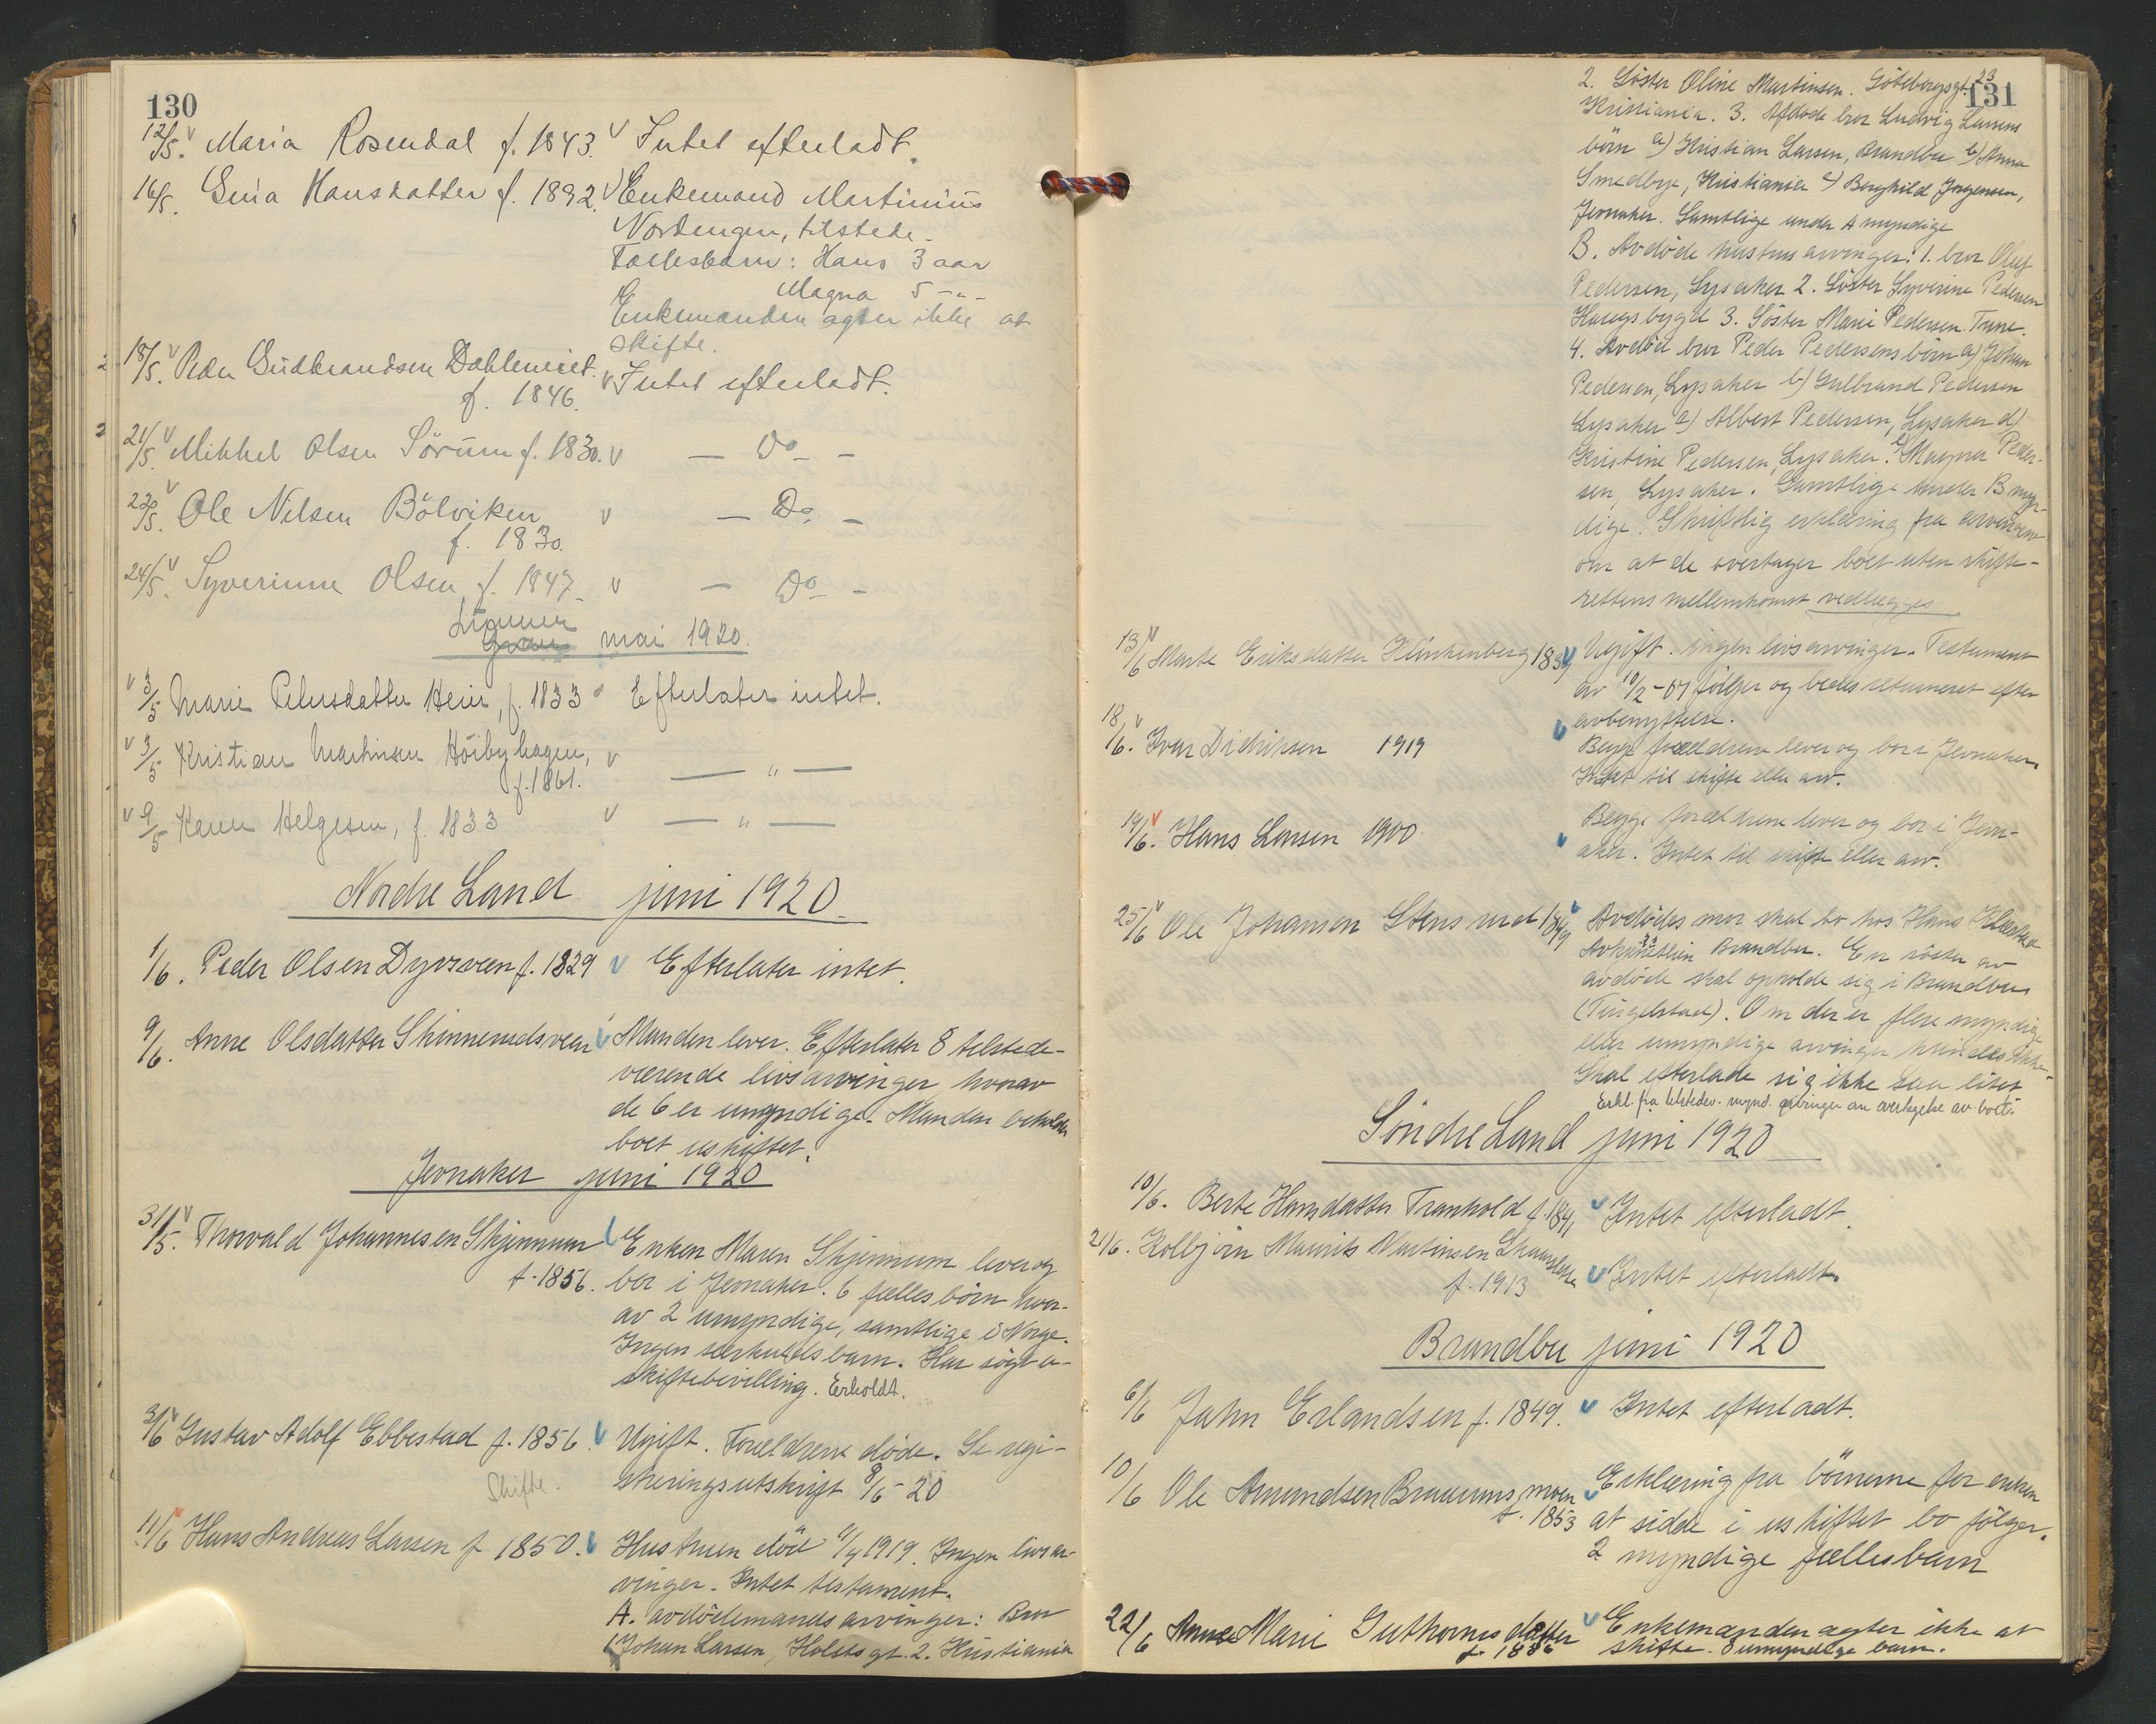 130
12/5. Maria Rosendal f. 1843. Intet efterladt.
16/5. Gina Hansdatter f. 1892. Enkemand Martinius
Nordengen, tilstede.
Fællesbarn: Hans 3 aar
Magna 5 -"-
Enkemanden agter ikke at
skifte.
18/5. Peder Gudbrandsen
f. 1846. Intet efterladt.
21/5. Mikkel Olsen Sörum f. 1830. — Do —
23/5. Ole Nilsen Bölviken — Do —
f. 1830.
24/5. Syverinne Olsen f. 1847 — Do —
Lunner
Gran mai 1920.
3/5 Marie Pedersdatter Heier, f. 1833 Efterlater intet.
3/5 Kristian Martinsen Höibyhagen, — " —
f. 1861.
9/5 Karen Helgesen, f. 1833 — " —
Nordre Land juni 1920.
1/6. Peder Olsen Dyrveen f. 1829 Efterlater intet.
9/6. Anne Olsdatter Skinnerudsveen Manden lever. Efterlater 8 tilstede-
værende livsarvinger hvorav
de 6 er umyndige. Manden beholder
boet uskiftet.
Jevnaker juni 1920
31/5. Thorvald Johannesen Skjennum Enken Maren Skjennum lever og
f. 1856. bor i Jevnaker. 6 fælles börn hvor-
av 2 umyndige, samtlige i Norge.
Ingen særkulds barn. Har sögt u-
skiftebevilling. Erholdt.
3/6 Gustav Adolf Ebbestad f. 1856. Ugift. Forældrene döde. Se regi-
Skifte. streringsutskrift 8/6 - 20
11/6 Hans Andreas Larsen f. 1850. Hustruen död 4/4 1919. Ingen livsar-
vinger. Intet testament.
A. avdödemands arvinger: Bror
1 Johan Larsen, Holstsgt. 2. Kristiania
131
2. Söster Oline Martinsen. Götebergsgt. 23
Kristiania. 3. Afdöde bror Ludvig Larsens
börn a) Kristian Larsen, Brandbu b) Anna
Smedbye, Kristiania c) Borghild Jörgensen,
Jevnaker. Samtlige under A myndige
B. Avdöde hustrus arvinger: 1. bror Oluf
Pedersen, Lysaker 2. Söster Syverine Pedersen
Haugsbygd 3. Söster Marie Pedersen
4. Avdöd bror Peder Pedersens börn a) Johan
Pedersen, Lysaker b) Gulbrand Pedersen
Lysaker c) Albert Pedersen, Lysaker d)
Kristine Pedersen, Lysaker. e) Magna Peder-
sen, Lysaker. Samtlige under B myn-
dige. Skriftlig erklæring fra arvingene
om at de overtager boet uten skifte-
rettens mellemkomst vedlægges
13/6 Marte Eriksdatter Klinkenberg Ugift. ingen livsarvinger. Testament
av 10/2 - 07 fölger og bedes returneret efter
avbenyttelse.
18/6. Ivar Didriksen 1919 Begge forældrene lever og bor i Jevnaker.
Intet til skifte eller arv.
19/6. Hans Larsen 1900 Begge forældrene lever og bor i Jevn-
aker. Intet til skifte eller arv.
25/6 Ole Johansen Stensrud 1849 Avdödes mor skal bo hos Hans
Brandbu. En söster av
avdöde skal opholde sig i Brandbu
(Tingelstad). Om der er flere myndige
eller umyndige arvinger
Skal efterlade sig ikke saa litet
Erkl. fra tilstedev. mynd. arvinger om overtagelse av boet.
Söndre Land juni 1920
10/6. Berte Hansdatter Tranhold f. 1841 Intet efterladt.
21/6. Kolbjörn Maurits Martinsen
f. 1913 Intet efterladt.
Brandbu juni 1920
6/6 John Erlandsen f. 1849. Intet efterladt.
10/6 Ole Amundsen Braaumsmoen Erklæring fra börnene for enken
f. 1853 at sidde i uskiftet bo fölger.
2 myndige fællesbarn
22/6 Anne Marie Guthormsdatter Enkemanden agter ikke at
f. 1886 skifte. 8 umyndige barn.